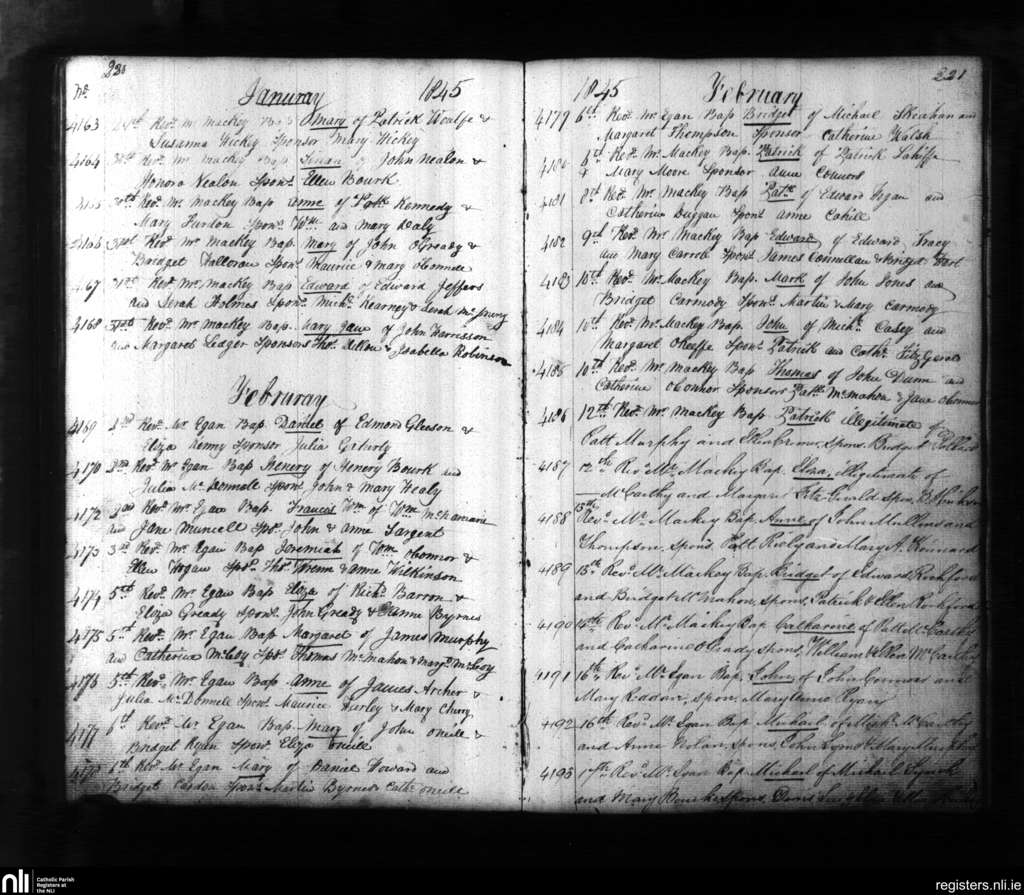 220
No. Januray 1845
4163 Revd. Mr. Mackey Bap Mary of Patrick Woulfe &
Susanna Hickey Sponsor Mary Hickey
4164 Revd. Mr. Mackey Bap Susan of John Nealon &
Honora Nealon Sponr. Ellen Bourk
30th Revd. Mr. Mackey Bap anne of Patk Kennedy &
Mary Furdon Sponr. Wm. and Mary Daly
31st Revd. Mr. Mackey Bap. Mary of John OGready &
Bridget Halloran Sponr. Maurice & Mary OConnell
4167 31st. Revd. Mr. Mackey Bap Edward of Edward Jeffers
and Sarah Holmes Sponr. Michl. Kearney & Sarah
4168 31st Revd. Mr. Mackey Bap. Mary Jane of John Harrisson
and Margaret Ledger Sponsors Thos. Dillon & Isabella Robinson
Februray
4169 2nd Revd. Mr. Egan Bap. Daniel of Edmond Gleeson &
Eliza Kenny Sponsor Julia Gaherty
4170 2nd Revd. Mr Egan Bap Henery of Henery Bourk and
Julia Mc.Donnell Sponr. John & Mary Healy
4172 2nd Revd. Mr. Egan Bap. Francis Wm. of Wm.
and Jane Muncell Spr. John & anne Sargent
4173 3rd Revd. Mr. Egan Bap Jeremiah of Wm OConnor &
Ellen Hogan Spr. Thos. & anne Wilkinson
4174 5th Revd. Mr. Egan Bap Eliza of Richd. Barron &
Eliza Gready Sponr. John Gready & Byrnes
4175 5th Revd. Mr. Egan Bap Margaret of James Murphy
and Catherine McCoy Spr. Thomas McMahon & Margt. McCoy
4176 5th. Revd. Mr. Egan Bap anne of James Archer &
Julia Mc.Donnell Sponr. Maurice Hurley & Mary Cherry
4177 6th Revd. Mr Egan Bap. Mary of John oneill &
Bridget Ryan Sponr. Eliza oneill
6th Revd. Mr. Egan Mary of Daniel Howard and
Bridget Sponr. Martin Byrnes & Cathe. oneill
221
1845 February
4179 6th. Revd. Mr. Egan Bap Bridget of Michael Sheahan and
Margaret Thompson Sponsor Catherine Walsh
8th Revd. Mr. Mackey Bap. Patrick of Patrick Lahiffe
& Mary Moore Sponsor anne Connors
4181 8th Revd. Mr. Mackey Bap Patk. of Edward Hogan and
Catherine Duggan Sponr anne Cahill
4182 9th Revd. Mr. Mackey Bap Edward of Edward Tracy
and Mary Carroll Sponr James Considine & Bridget
4183 10th. Revd. Mr. Mackey Bap. Mark of John Jones and
Bridget Carmody Sponr. Martin & Mary Carmody
4184 10th. Revd. Mr. Mackey Bap. John of Michl. Casey and
Margaret OKeeffe Sponr. Patrick and Cathe. FitzGerald
4185 10th Revd. Mr. Mackey Bap Thomas of John Dunn and
Catherine OConnor Sponsors Patk. McMahon & Jane OConnor
4186 12th Revd. Mr. Mackey Bap Patrick illegitimate of
Patt Murphy and Spons. Bridget
4187 12th Revd. Mr. Mackey Bap. Eliza, illegitimate of
McCarthy and Margaret FitzGerald Spons.
4188 15th Revd. Mr. Mackey Bap. Anne of John Mullins and
Thompson, spons. Patt Riely and Mary A. Kinnard
4189 15th. Revd. Mr. Mackey Bap. Bridget of Edward, Rochford
and Bridget McMahon, spons. Patrick & Ellen Rochford
4190 15th Revd. Mr. Mackey Bap Catharine of Patt McCarthy
and Catharine OGrady Spons. William & McCarthy
4191 16th. Revd. Mr. Egan Bap. John of John Connors and
Mary Radan, spon. Mary Anne Ryan
4192 16th Revd. Mr. Egan Bap. Michael of Michl. McCarthy
and Anne Nolan, spons. John Lyons & Mary
4193 17th Revd. Mr. Egan Bap. Michael of Michael Lynch
and Mary Bourke spons. Denis
nli Catholic Parish
Registers at
the NLI
registers.nli.ie